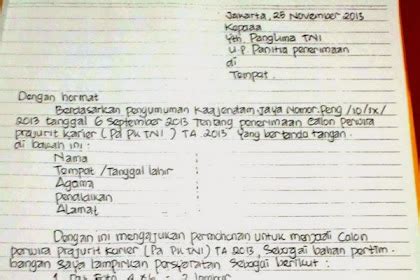 Jakarta, 25 November 2013
Kepada
Yth. Panglima TNI
u.p. Panitia penerimaan
di
Tempat.
Dengan hormat
Berdasarkan Pengumuman Kaajendam Jaya Nomor: Peng /10/IX/
2013 tanggal 6 September 2013 Tentang penerimaan Calon Perwira
prajurit karier (Pa PK TNI) TA 2013 yang bertanda tangan.
di bawah ini :
Nama :
Tempat /Tanggal lahir :
Agama :
Pendidikan :
Alamat :
Dengan ini mengajukan permohonan untuk menjadi Calon
perwira prajurit karier (Pa PK TNI) TA 2013, Sebagai bahan pertim
bangan Saya lampirkan persyaratan Sebagai berikut :